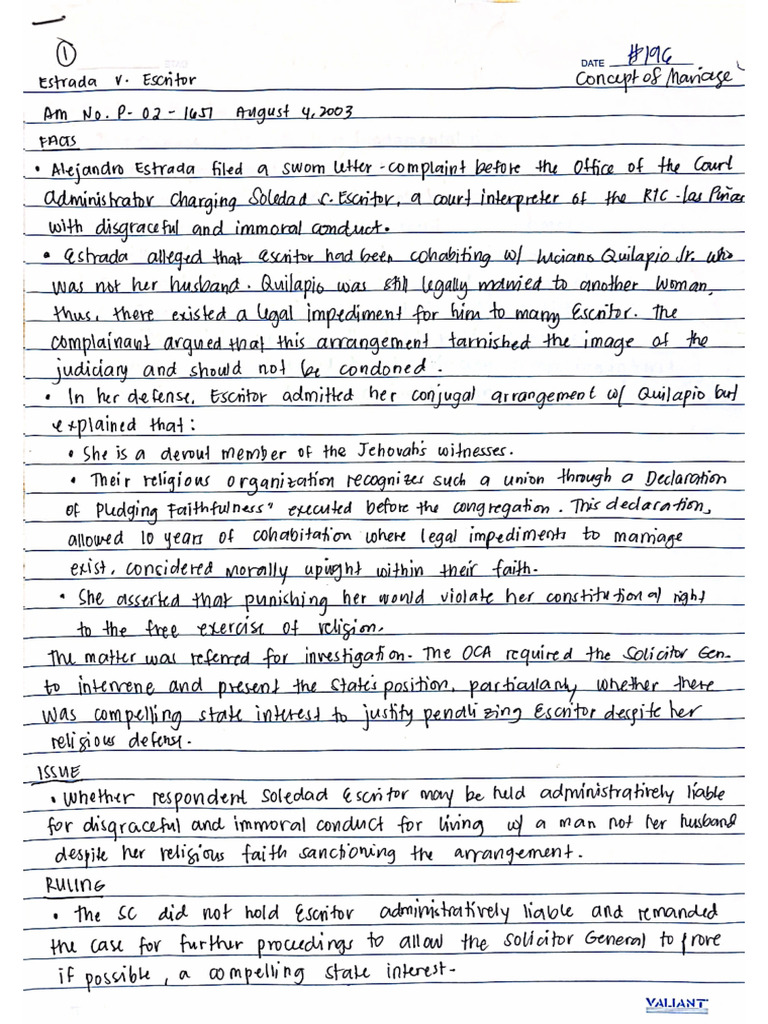 ①
DATE #196
Estrada v. Escritor Concept of Marriage
Am No. P-02-1651 August 4, 2003
FACTS
• Alejandro Estrada filed a sworn letter-complaint before the Office of the Court
Administrator Charging Soledad S. Escritor, a court interpreter of the RTC-Las Piñas
with disgraceful and immoral conduct.
• Estrada alleged that Escritor had been cohabiting w/ Luciano Quilapio Jr. who
was not her husband. Quilapio was still legally married to another woman,
thus, there existed a legal impediment for him to marry Escritor. The
complainant argued that this arrangement tarnished the image of the
judiciary and should not be condoned.
• In her defense, Escritor admitted her conjugal arrangement w/ Quilapio but
explained that:
• She is a devout member of the Jehovah's witnesses.
• Their religious organization recognizes such a union through a Declaration
of Pledging Faithfulness" executed before the congregation. This declaration,
allowed 10 years of cohabitation where legal impediments to marriage
exist, considered morally upright within their faith.
• She asserted that punishing her would violate her constitutional right
to the free exercise of religion.
The matter was referred for investigation. The OCA required the Solicitor Gen.
to intervene and present the State's position, particularly whether there
was compelling state interest to justify penalizing Escritor despite her
religious defense.
ISSUE
• Whether respondent Soledad Escritor may be held administratively liable
for disgraceful and immoral conduct for living w/ a man not her husband
despite her religious faith sanctioning the arrangement.
RULING
• The SC did not hold Escritor administratively liable and remanded
the case for further proceedings to allow the Solicitor General to prove
if possible, a compelling state interest.
VALIANT